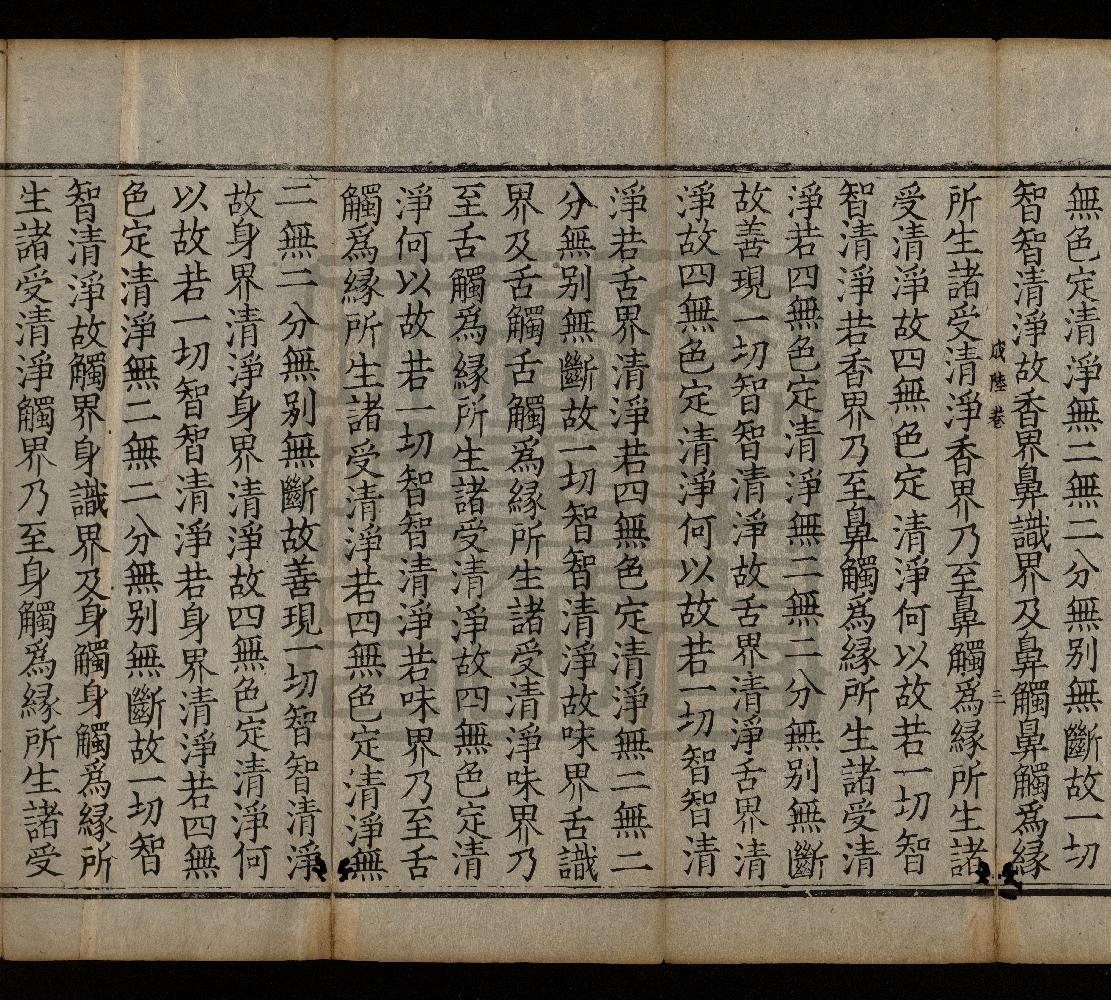 無色定清淨無二無二分無别無斷故一切
智智清淨故香界鼻識界及鼻觸鼻觸爲緣
陸卷
三
所生諸受清淨香界乃至鼻觸爲緣所生諸
受清淨故四無色定清淨何以故若一切智
智清淨若香界乃至鼻觸爲緣所生諸受清
淨若四無色定清淨無二無二分無别無斷
故善現一切智智清淨故舌界清淨舌界清
淨故四無色定清淨何以故若一切智智清
淨若舌界清淨若四無色定清淨無二無二
分無别無斷故一切智智清淨故味界舌識
界及舌觸舌觸爲緣所生諸受清淨味界乃
至舌觸爲緣所生諸受清淨故四無色定清
淨何以故若一切智智清淨若味界乃至舌
觸爲緣所生諸受清淨若四無色定清淨無
二無二分無别無斷故善現一切智智清淨
故身界清淨身界清淨故四無色定清淨何
以故若一切智智清淨若身界清淨若四無
色定清淨無二無二分無别無斷故一切智
智清淨故觸界身識界及身觸身觸爲緣所
生諸受清淨觸界乃至身觸爲緣所生諸受